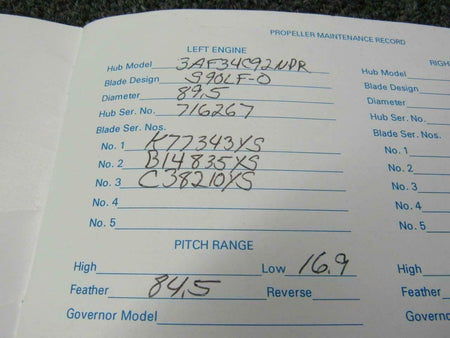 PROPELLER MAINTENANCE RECORD
LEFT ENGINE
Hub Model 3AF34C92NPR
Blade Design S90LF-0
Diameter 89.5
Hub Ser. No. 716267
Blade Ser. Nos.
No. 1 K77343YS
No. 2 B14835YS
No. 3 C38210YS
No. 4
No. 5
PITCH RANGE
High Low 16.9
Feather 84.5 Reverse
Governor Model
RIGH
Hub Model
Blade Design
Diameter
Hub Ser. No.
Blade Ser. Nos.
No. 1
No. 2
No. 3
No. 4
No. 5
High
Feather
Governor